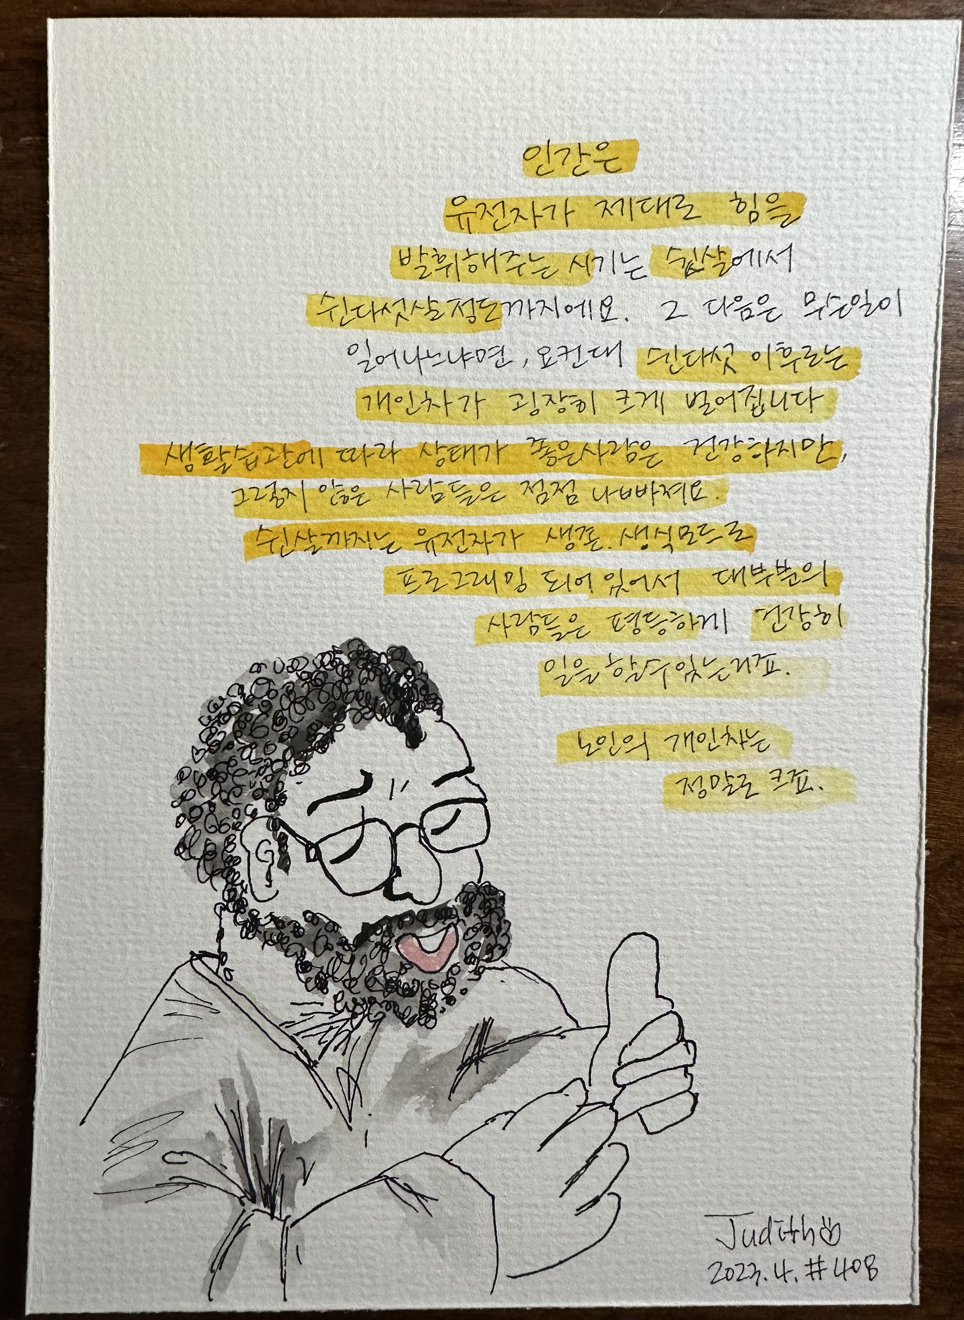 인간은
유전자가 제대로 힘을
발휘해주는 시기는 쉰살에서
쉰다섯살 정도까지에요. 그 다음은 무슨일이
일어나느냐면, 요컨대 쉰다섯 이후로는
개인차가 굉장히 크게 벌어집니다
생활습관에 따라 상태가 좋은사람은 건강하지만,
그렇지 않은 사람들은 점점 나빠져요.
쉰살까지는 유전자가 생존.생식모드로
프로그래밍 되어있어서 대부분의
사람들은 평등하게 건강히
일을 할수있는데요.
노인의 개인차는
정말로 크죠.
Judith
2023.4.#408